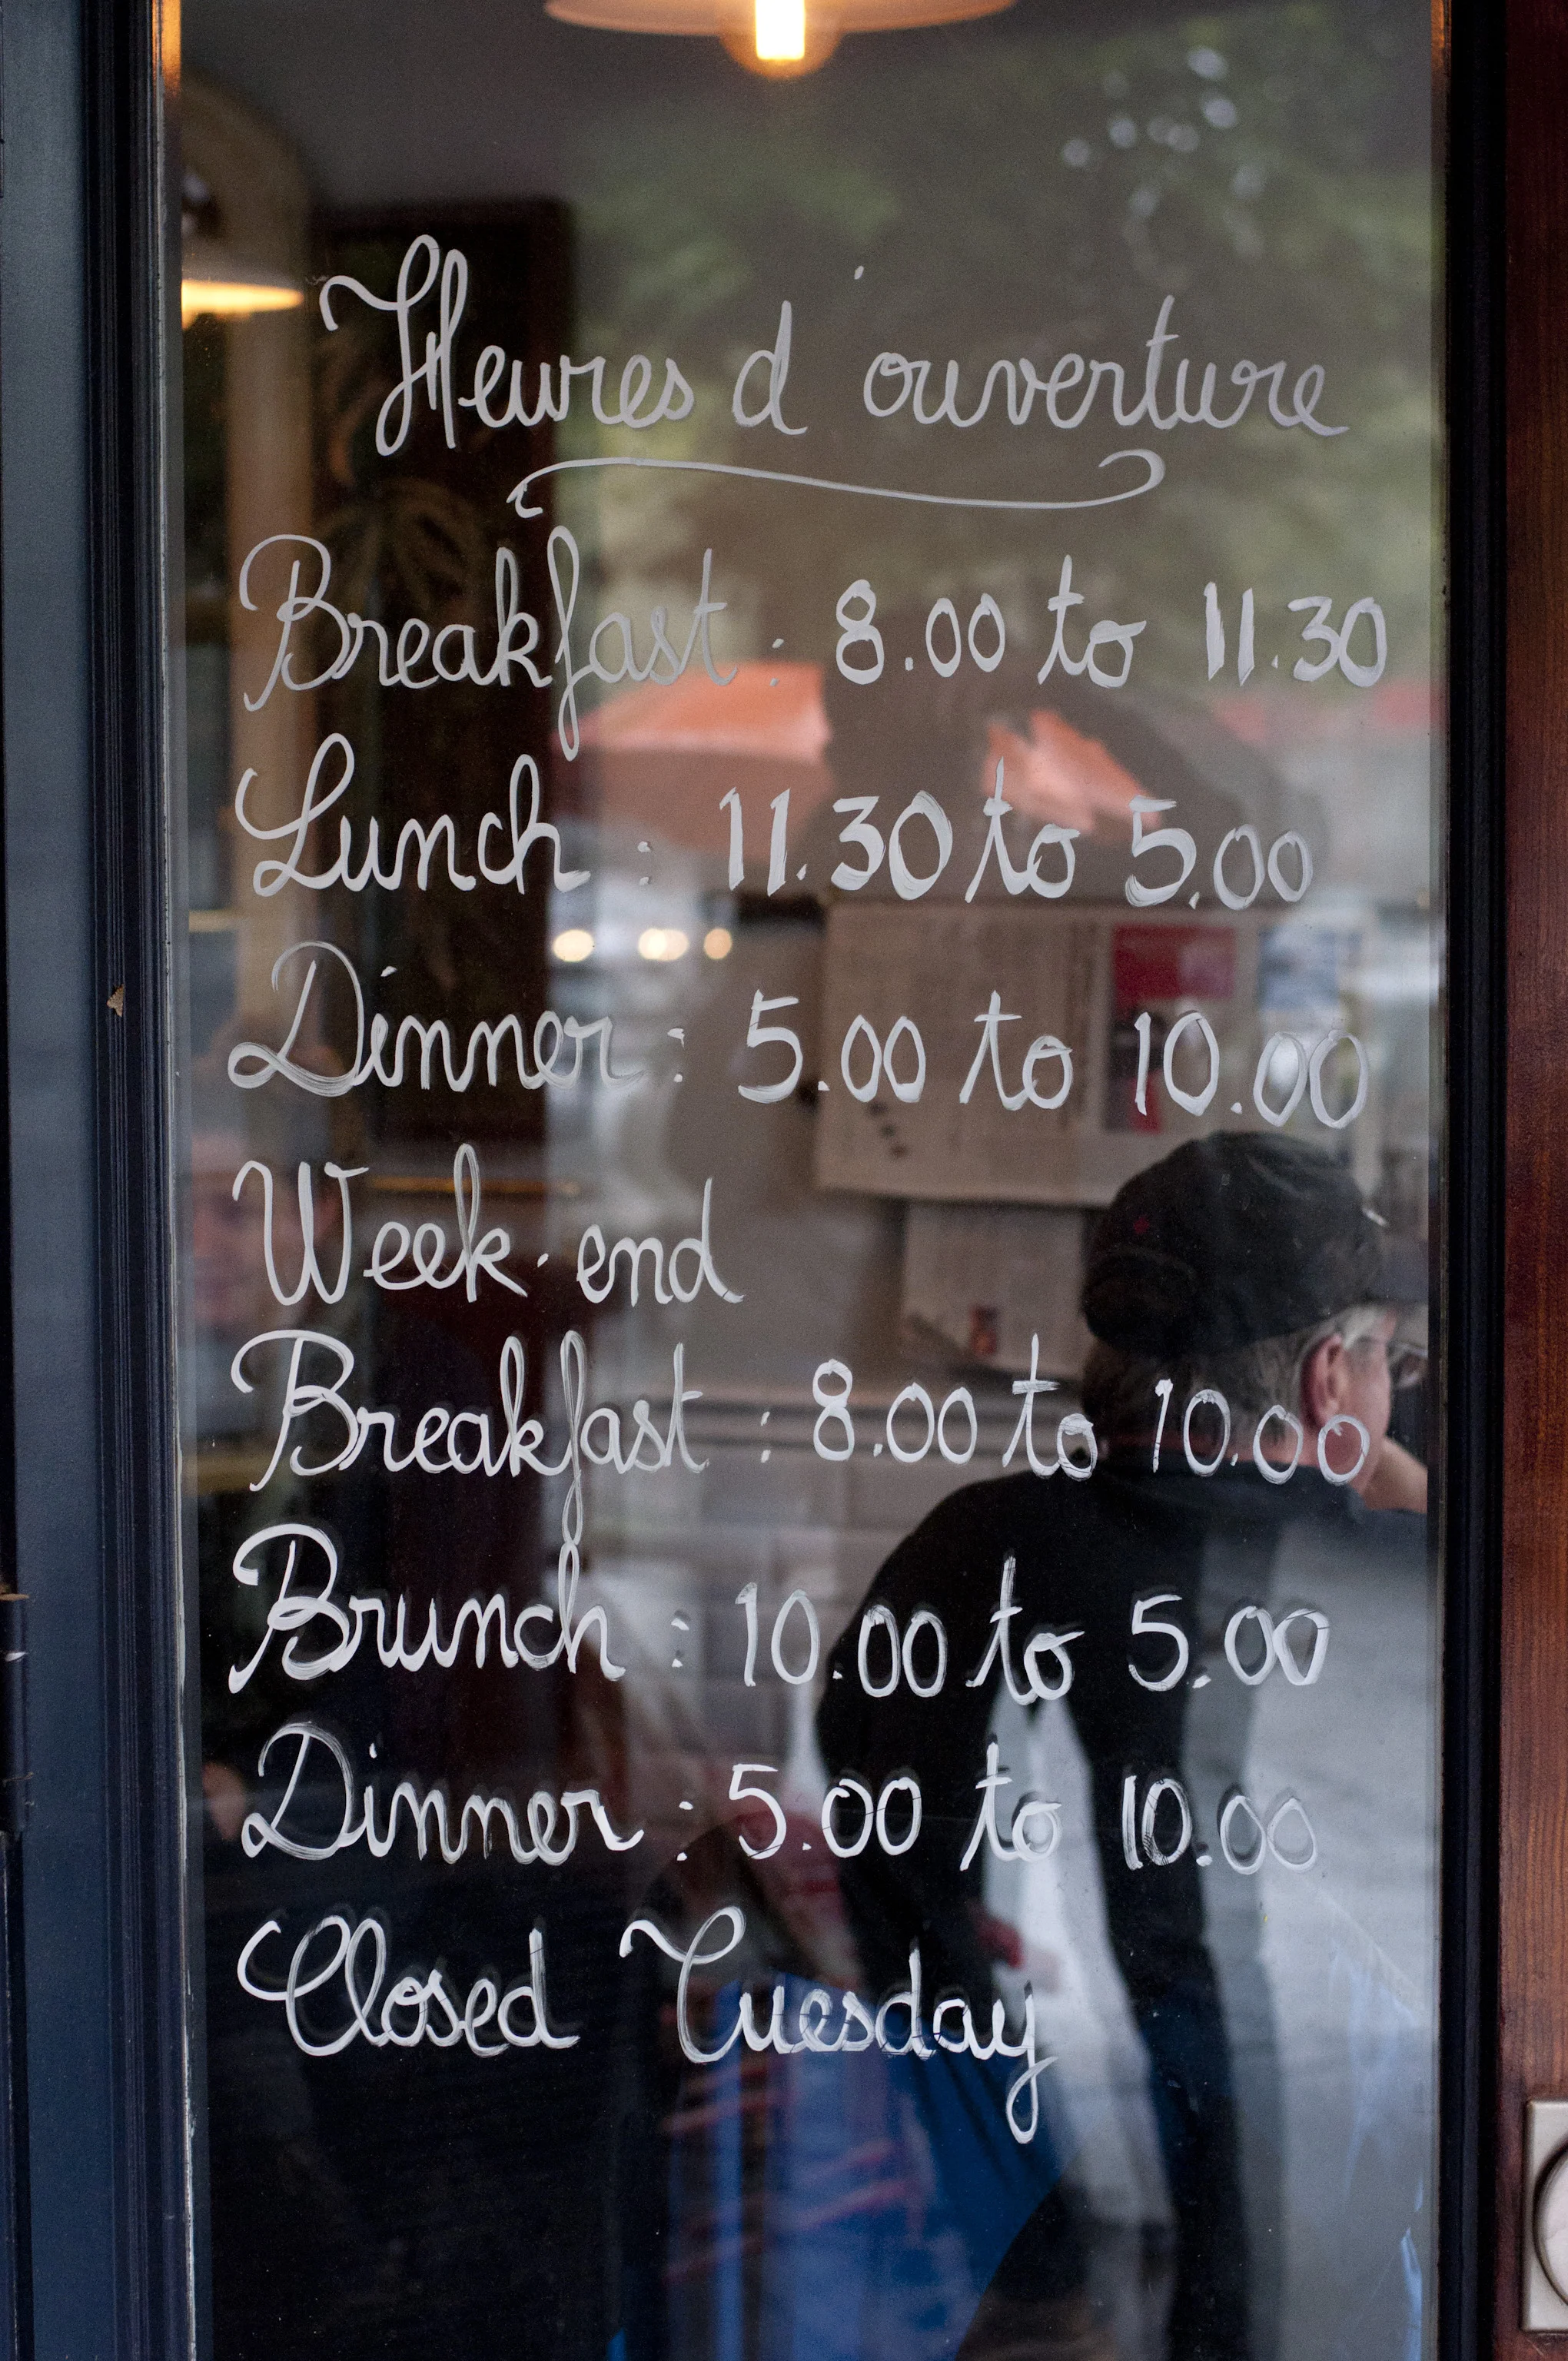 Heures d'ouverture
Breakfast : 8.00 to 11.30
Lunch : 11.30 to 5.00
Dinner : 5.00 to 10.00
Week-end
Breakfast : 8.00 to 10.00
Brunch : 10.00 to 5.00
Dinner : 5.00 to 10.00
Closed Tuesday